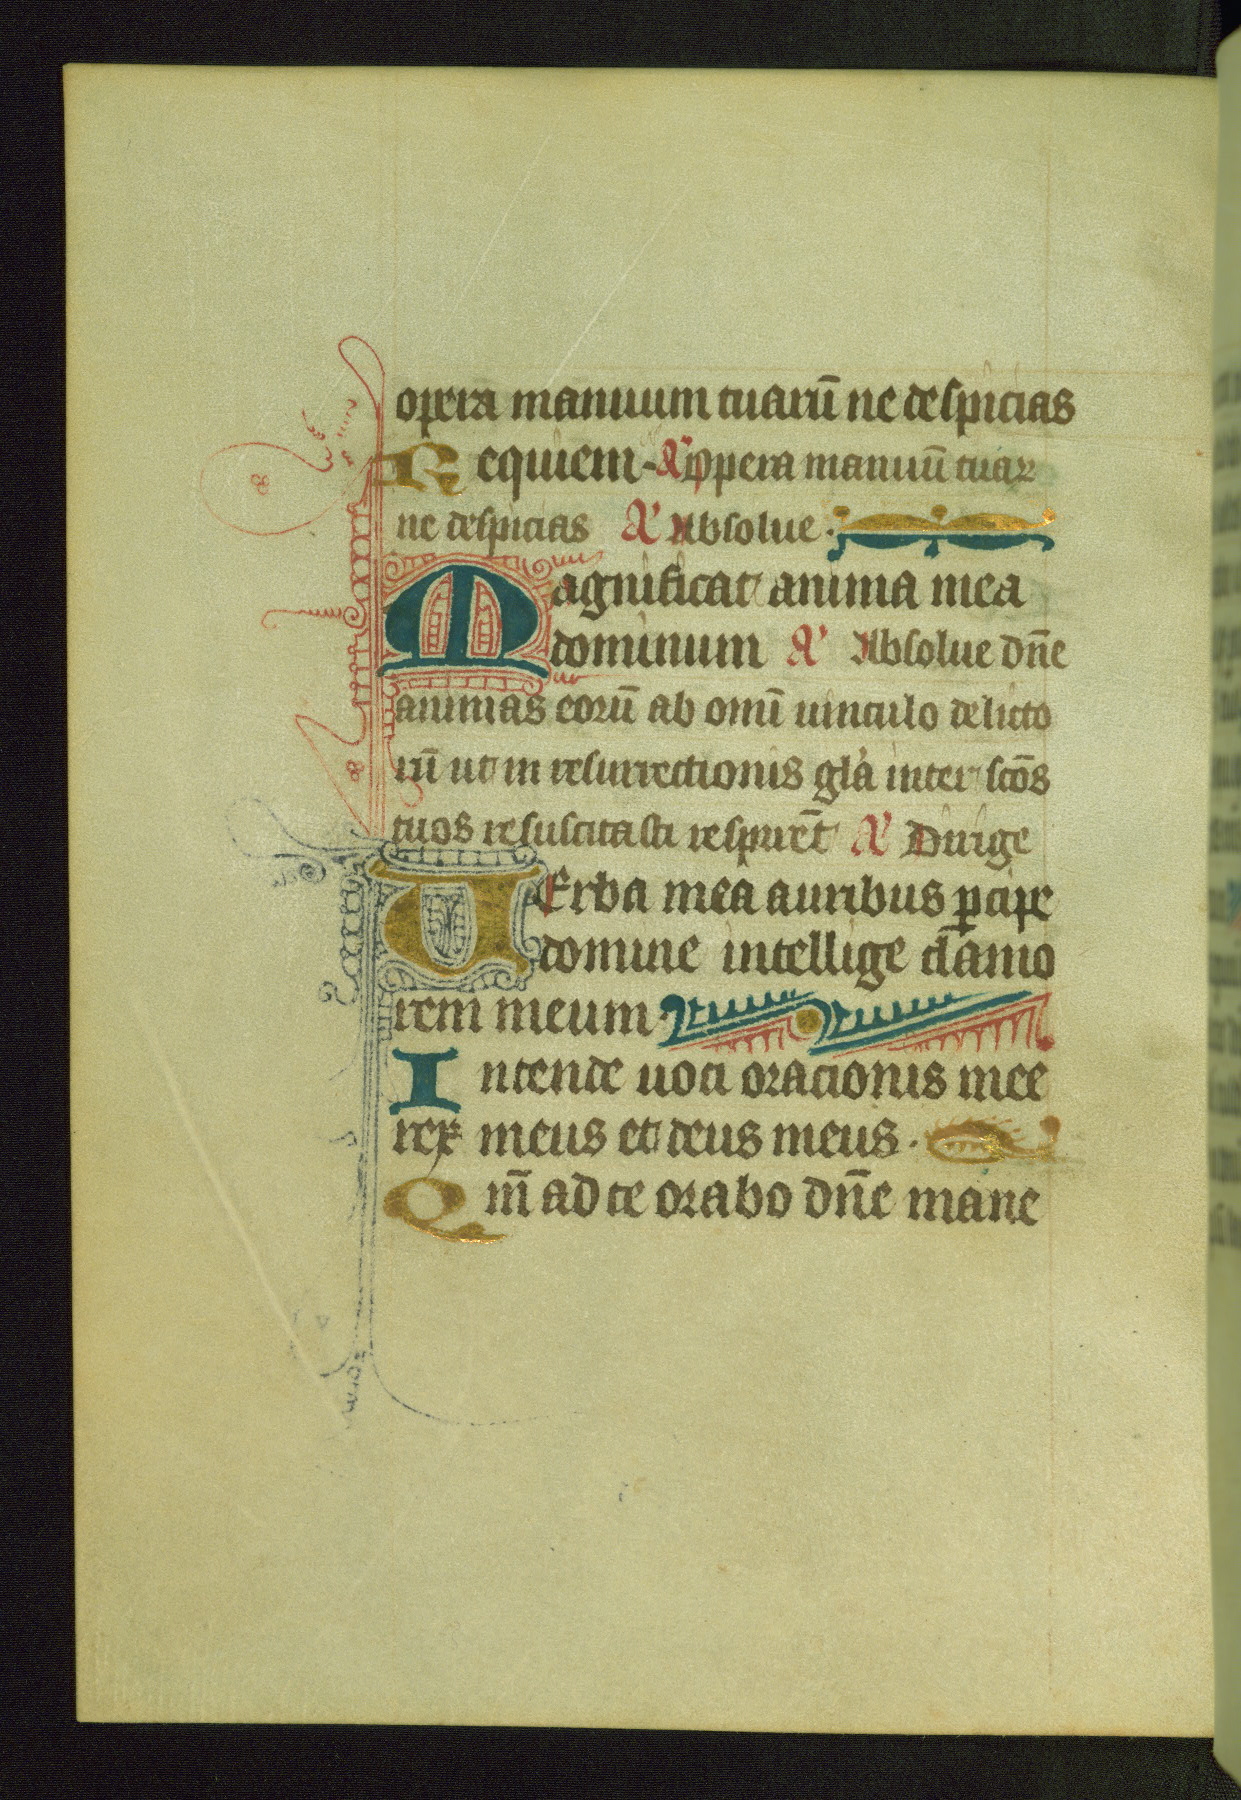 opera manuum tuarū ne despicias
Requiem. A' Opera manuū tuaꝝ
ne despicias A' Absolue.
Magnificat anima mea
dominum A' Absolue dn̄e
animas eorū ab omī uinculo delicto
rū ut in resurrectionis gl'a inter sc̄os
tuos resuscitasti respirēt A' Dirige
VErba mea auribus ꝑcipe
domine intellige clamo
rem meum
Intende uoci oracionis mee
rex meus et deus meus.
Qm̄ ad te orabo dn̄e mane